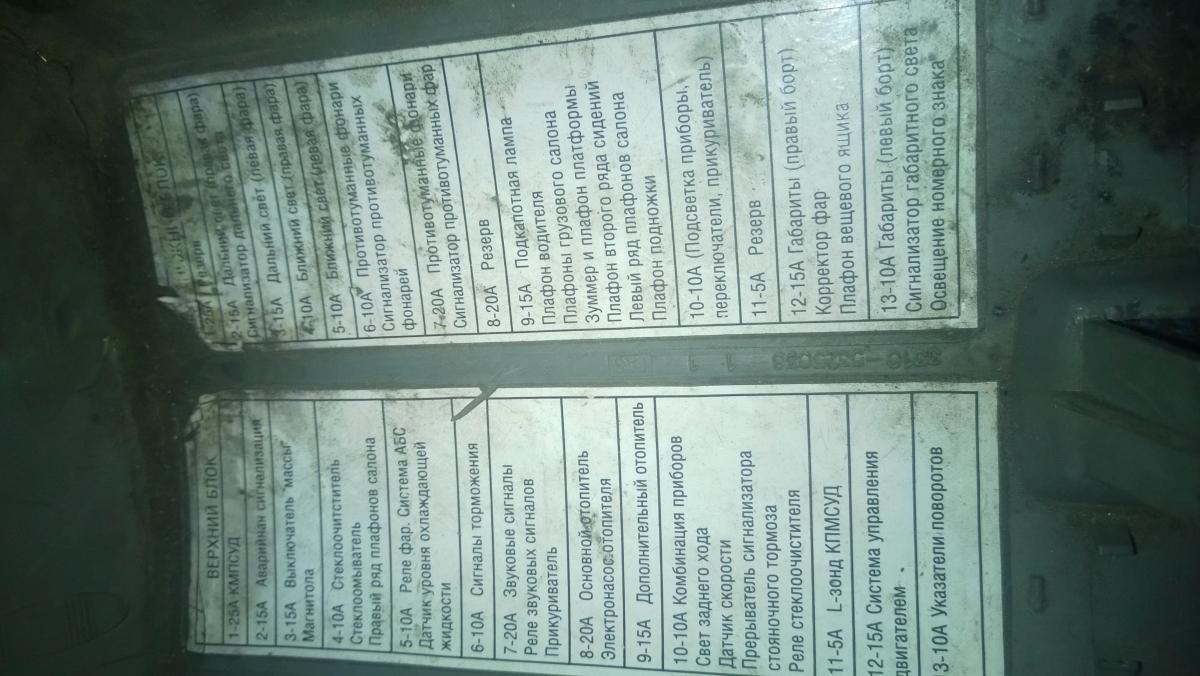 ВЕРХНИЙ БЛОК
1-25А КМПСУД
2-15А Аварийнан сигнализация
3-15А Выключатель массы
Магнитола
4-10А Стеклоочитститель
Стеклоомыватель
Правый ряд плафонов салона
5-10А Реле фар. Система АБС
Датчик уровня охлаждающей
жидкости
6-10А Сигналы торможения
7-20А Звуковые сигналы
Реле звуковых сигналов
Прикуриватель
8-20А Основной отопитель
Электронасос отопителя
9-15А Дополнительный отопитель
10-10А Комбинация приборов
Свет заднего хода
Датчик скорости
Прерыватель сигнализатора
стояночного тормоза
Реле стеклоочистителя
11-5А L-зонд КПМСУД
12-15А Система управления
двигателем
13-10А Указатели поворотов
БЛОК
1-25А Резерв
2-15А Дальний свет (правая фара)
Сигнализатор дальнего света
3-15А Дальний свет (левая фара)
4-10А Ближний свет (правая фара)
5-10А Ближний свет (левая фара)
6-10А Противотуманные фонари
Сигнализатор противотуманных
фонарей
7-20А Противотуманные фонари
Сигнализатор противотуманных фар
8-20А Резерв
9-15А Подкапотная лампа
Плафон водителя
Плафоны грузового салона
Зуммер и плафон платформы
Плафон второго ряда сидений
Левый ряд плафонов салона
Плафон подножки
10-10А (Подсветка приборы,
переключатели, прикуриватель)
11-5А Резерв
12-15А Габариты (правый борт)
Корректор фар
Плафон вещевого ящика
13-10А Габариты (левый борт)
Сигнализатор габаритного света
Освещение номерного знака